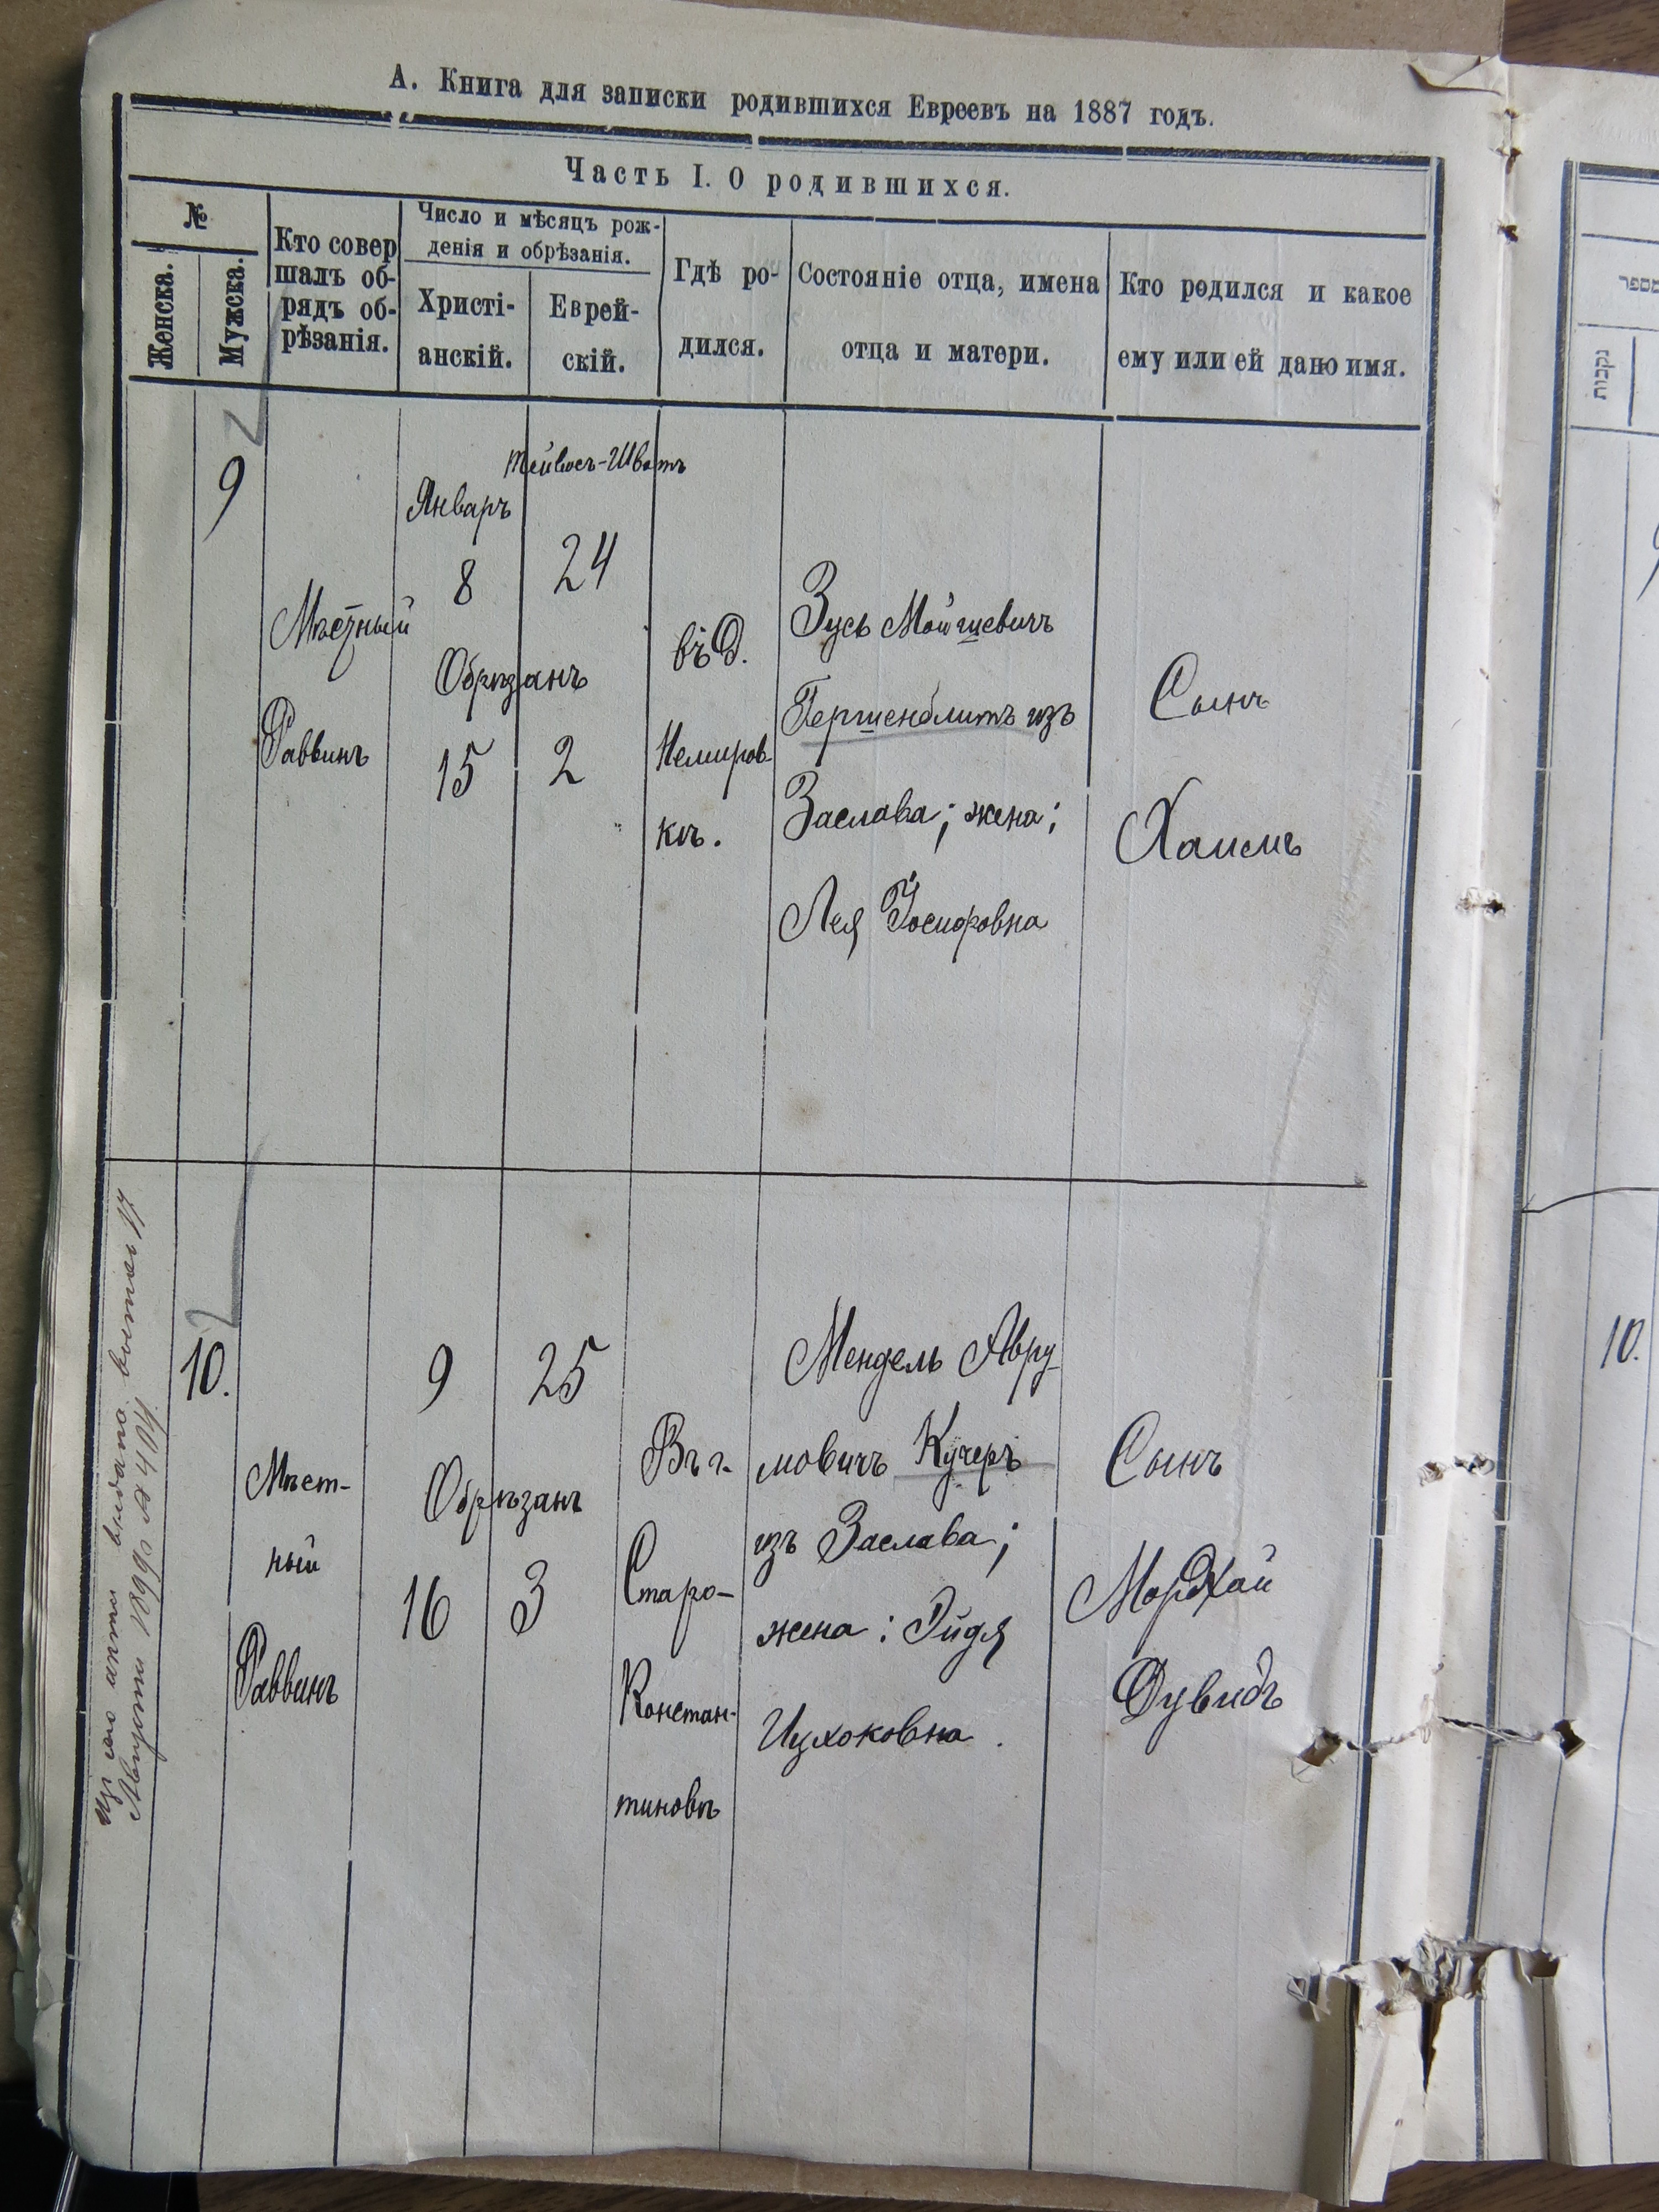 А. Книга для записки родившихся Евреевъ на 1887 годъ.
Часть I. О родившихся.
№
Женска.
Мужска.
Кто совер
шалъ об-
рядъ об-
рѣзанія.
Число и мѣсяцъ рож-
денія и обрѣзанія.
Христі-
анскій.
Еврей-
скій.
Гдѣ ро-
дился.
Состояніе отца, имена
отца и матери.
Кто родился и какое
ему или ей дано имя.
9
Мѣстный
Раввинъ
Январь
Тейвосъ-Шватъ
8 24
Обрѣзанъ
15 2
въ д.
Немиров-
кѣ.
Зусь Мойшевичъ
Гершенблитъ изъ
Заслава; жена;
Лея Йосифовна
Сынъ
Хаимъ
10.
Мѣст-
ный
Раввинъ
9 25
Обрѣзанъ
16 3
Въ г.
Старо-
Констан-
тиновѣ
Мендель Авру-
мовичъ Кучеръ
изъ Заслава;
жена: Эйдя
Ицхоковна.
Сынъ
Мордхай
Дувидъ
выдана
1899
נקבות
מספר
10.